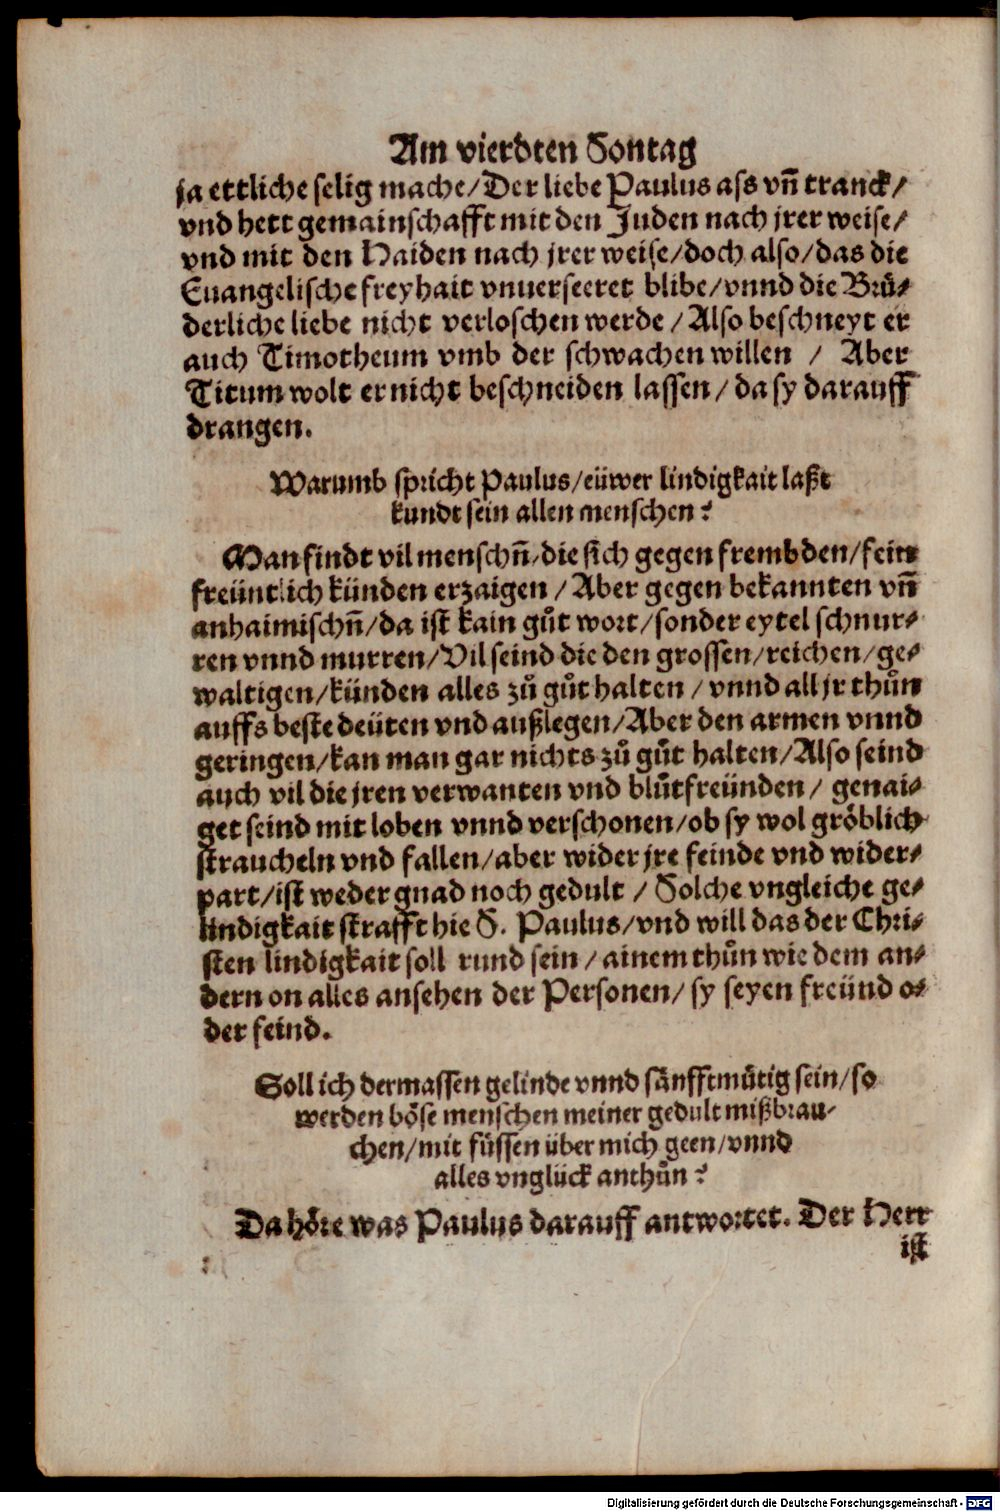 Am vierdten Sontag
ja ettliche selig mache/Der liebe Paulus ass vn̄ tranck/
vnd hett gemainschafft mit den Juden nach jrer weise/
vnd mit den Haiden nach jrer weise/doch also/das die
Euangelische freyhait vnuerseeret blibe/vnnd die Brů⸗
derliche liebe nicht verloschen werde/Also beschneyt er
auch Timotheum vmb der schwachen willen / Aber
Titum wolt er nicht beschneiden lassen/da sy darauff
drangen.
Warumb spricht Paulus/eüwer lindigkait laßt
kundt sein allen menschen?
Man findt vil menschn̄/die sich gegen frembden/fein
freüntlich künden erzaigen/Aber gegen bekannten vn̄
anhaimischn̄/da ist kain gůt wort/sonder eytel schnur⸗
ren vnnd murren/Vil seind die den grossen/reichen/ge⸗
waltigen/künden alles zů gůt halten/vnnd all jr thůn
auffs beste deüten vnd außlegen/Aber den armen vnnd
geringen/kan man gar nichts zů gůt halten/Also seind
auch vil die jren verwanten vnd blůtfreünden/ genai⸗
get seind mit loben vnnd verschonen/ob sy wol gröblich
straucheln vnd fallen/aber wider jre feinde vnd wider⸗
part/ist weder gnad noch gedult / Solche vngleiche ge⸗
lindigkait strafft hie S. Paulus/vnd will das der Chri⸗
sten lindigkait soll rund sein/ainem thůn wie dem an⸗
dern on alles ansehen der Personen/sy seyen freünd o⸗
der feind.
Soll ich dermassen gelinde vnnd sänfftmůtig sein/so
werden böse menschen meiner gedult mißbrau⸗
chen/mit füssen über mich geen/vnnd
alles vnglück anthůn?
Da höre was Paulus darauff antwortet. Der Herr
ist
Digitalisierung gefördert durch die Deutsche Forschungsgemeinschaft - DFG